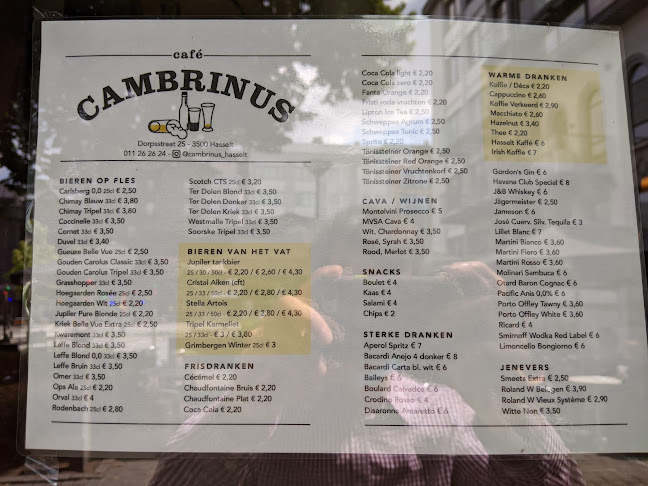 café
CAMBRINUS
Dorpsstraat 25 - 3500 Hasselt
011 26 26 24 - @cambrinus_hasselt
BIEREN OP FLES
Carlsberg 0,0 25cl € 2,50
Chimay Blauw 33cl € 3,80
Chimay Tripel 33cl € 3,80
Coccinelle 33cl € 3,50
Cornet 33cl € 3,50
Duvel 33cl € 3,40
Gueuze Belle Vue 25cl € 2,50
Gouden Carolus Classic 33cl € 3,50
Gouden Carolus Tripel 33cl € 3,50
Grasshopper 33cl € 3,50
Hoegaarden Rosée 25cl € 2,50
Hoegaarden Wit 25cl € 2,20
Jupiler Pure Blonde 25cl € 2,20
Kriek Belle Vue Extra 25cl € 2,50
Kwaremont 33cl € 3,50
Leffe Blond 33cl € 3,50
Leffe Blond 0,0 33cl € 3,50
Leffe Bruin 33cl € 3,50
Omer 33cl € 3,50
Ops Ale 25cl € 2,20
Orval 33cl € 4
Rodenbach 25cl € 2,80
Scotch CTS 25cl € 3,20
Ter Dolen Blond 33cl € 3,50
Ter Dolen Donker 33cl € 3,50
Ter Dolen Kriek 33cl € 3,50
Westmalle Tripel 33cl € 3,50
Soorske Tripel 33cl € 3,50
BIEREN VAN HET VAT
Jupiler tankbier
25 / 30 / 50cl - € 2,20 / € 2,60 / € 4,30
Cristal Alken (cft)
25 / 33 / 50cl - € 2,20 / € 2,80 / € 4,30
Stella Artois
25 / 33 / 50cl - € 2,20 / € 2,80 / € 4,30
Tripel Karmeliet
25 / 33cl - € 3 / € 3,80
Grimbergen Winter 25cl € 3
FRISDRANKEN
Cécémel € 2,20
Chaudfontaine Bruis € 2,20
Chaudfontaine Plat € 2,20
Coca Cola € 2,20
Coca Cola light € 2,20
Coca Cola zero € 2,20
Fanta Orange € 2,20
Fristi rode vruchten € 2,20
Lipton Ice Tea € 2,50
Schweppes Agrum € 2,50
Schweppes Tonic € 2,50
Sprite € 2,20
Tönissteiner Orange € 2,50
Tönissteiner Red Orange € 2,50
Tönissteiner Vruchtenkorf € 2,50
Tönissteiner Zitrone € 2,50
CAVA / WIJNEN
Montelvini Prosecco € 5
MVSA Cava € 4
Wit, Chardonnay € 3,50
Rosé, Syrah € 3,50
Rood, Merlot € 3,50
SNACKS
Boulet € 4
Kaas € 4
Salami € 4
Chips € 2
STERKE DRANKEN
Aperol Spritz € 7
Bacardi Anejo 4 donker € 8
Bacardi Carta bl. wit € 6
Baileys € 6
Boulard Calvados € 6
Crodino Rosso € 4
Disaronno Amaretto € 6
WARME DRANKEN
Koffie / Déca € 2,20
Cappuccino € 2,60
Koffie Verkeerd € 2,90
Macchiato € 2,60
Hazelnut € 3,40
Thee € 2,20
Hasselt Koffie € 6
Irish Koffie € 7
Gordon's Gin € 6
Havana Club Special € 8
J&B Whiskey € 6
Jägermeister € 2,50
Jameson € 6
José Cuerv. Silv. Tequila € 3
Lillet Blanc € 7
Martini Bianco € 3,60
Martini Fiero € 3,60
Martini Rosso € 3,60
Molinari Sambuca € 6
Otard Baron Cognac € 6
Pacific Anis 0,0% € 6
Porto Offley Tawny € 3,60
Porto Offley White € 3,60
Ricard € 4
Smirnoff Wodka Red Label € 6
Limoncello Bongiorno € 6
JENEVERS
Smeets Extra € 2,50
Roland W Belegen € 3,90
Roland W Vieux Système € 2,90
Witte Non € 3,50